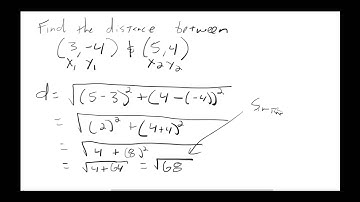 Find the distance between
(3,-4) & (5,4)
x₁ y₁ x₂ y₂
d = √((5-3)² + (4-(-4))²)
= √((2)² + (4+4)²)
= √(4 + (8)²)
= √(4+64) = √68